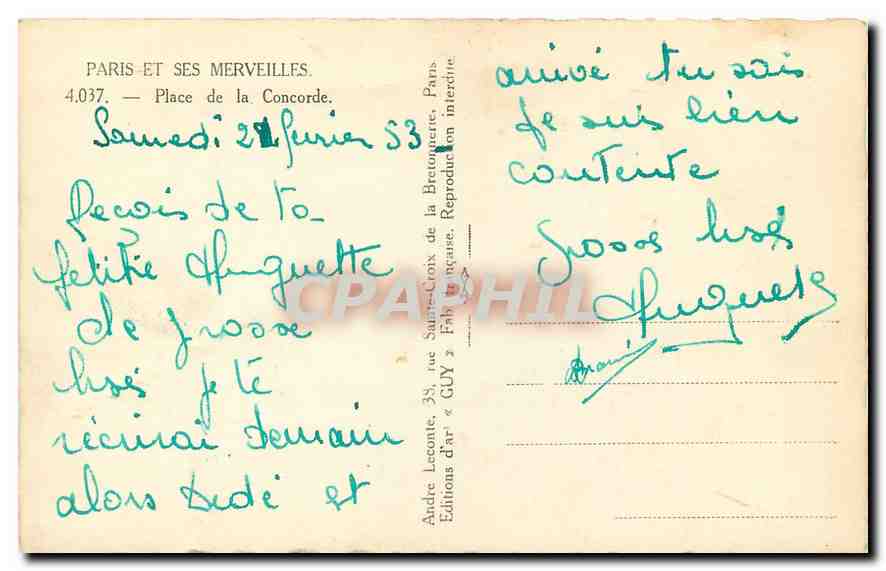 PARIS ET SES MERVEILLES.
4.037. — Place de la Concorde.
Samedi 21 fevrier 53
Reçois de ta
petitie Huguette
de grosse
bisés je te
récirrai demain
alors Dédé et
André Leconte, 38, rue Sainte-Croix de la Bretonnerie, Paris
Editions d'art « GUY » Fab. Française. Reproduction interdite.
arrivé tu sais
je suis bien
contente
grosse bisés
Huguette
CPAPHIL